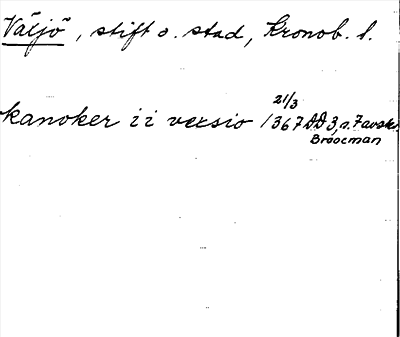 Växjö, stift o. stad, Kronob. l.
21/3
kanoker i i versio 1367 DD 3, s. 7 avskr.
Broocman